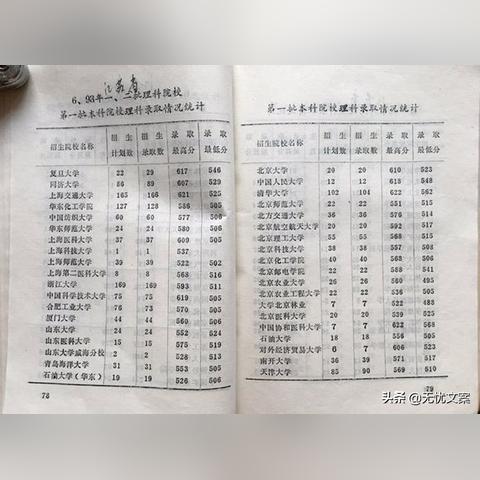 6、93年江苏省一、二批理科院校
第一批本科院校理科录取情况统计
招生院校名称 招生计划数 招生录取数 录取最高分 录取最低分
复旦大学 22 29 617 546
同济大学 86 89 607 529
上海交通大学 165 166 621 525
华东化工学院 127 128 586 505
中国纺织大学 60 60 577 506
华东师范大学 24 24 580 506
上海医科大学 37 37 609 505
上海科技大学 1 1 537
上海师范大学 39 39 522 502
上海第二医科大学 8 8 568 516
浙江大学 169 169 593 511
中国科学技术大学 75 75 619 505
合肥工业大学 76 76 573 505
厦门大学 44 44 570 505
山东大学 24 24 552 524
山东医科大学 15 15 575
山东大学威海分校 2 2 513
青岛海洋大学 31 31 553 505
石油大学(华东) 19 19 526 506
78
第一批本科院校理科录取情况统计
招生院校名称 招生计划数 招生录取数 录取最高分 录取最低分
北京大学 20 20 610 523
中国人民大学 12 12 618 545
清华大学 102 104 622 562
北京师范大学 22 22 561 515
北方交通大学 36 36 576 514
北京航空航天大学 20 20 592 517
北京理工大学 55 55 568 515
北京科技大学 38 38 557 508
北京化工学院 40 40 568 523
北京邮电学院 22 22 588 541
北京农业大学 26 26 530
北京农业工程大学 22 22 536 505
北京林业大学 7 7 522 488
北京医科大学 20 20 539 505
中国协和医科大学 7 7 622 568
石油大学 18 18 508
对外经济贸易大学 6 7 606 523
南开大学 36 39 571 517
天津大学 85 90 569 510
79
头条 @无忧文案